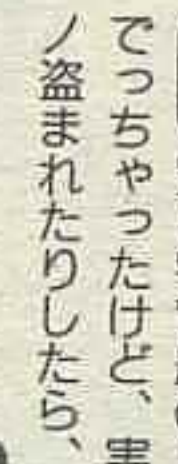 でっちゃったけど、実
ノ盗まれたりしたら、